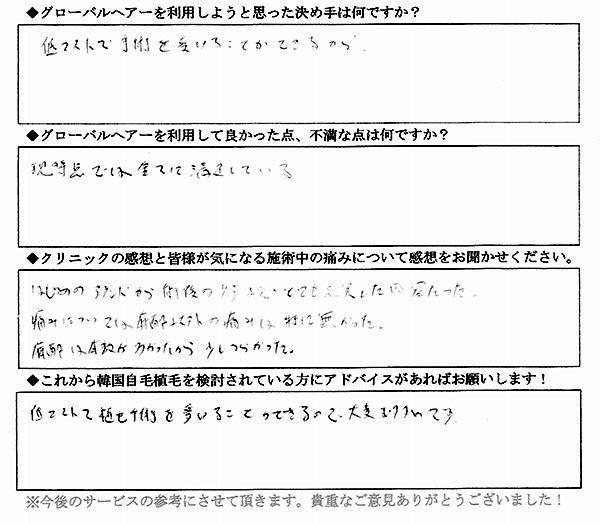 ◆グローバルヘアーを利用しようと思った決め手は何ですか？
低コストで手術を受いることができるから．
◆グローバルヘアーを利用して良かった点、不満な点は何ですか？
現時点では全てに満足している
◆クリニックの感想と皆様が気になる施術中の痛みについて感想をお聞かせください。
はじめの から術後の とても充実した内容だった。
痛みについては麻酔以外の痛みは特に無かった。
麻酔は本数が多かったから少しつらかった。
◆これから韓国自毛植毛を検討されている方にアドバイスがあればお願いします！
低コストで植毛手術を受いることができるので、大変 です
※今後のサービスの参考にさせて頂きます。貴重なご意見ありがとうございました！